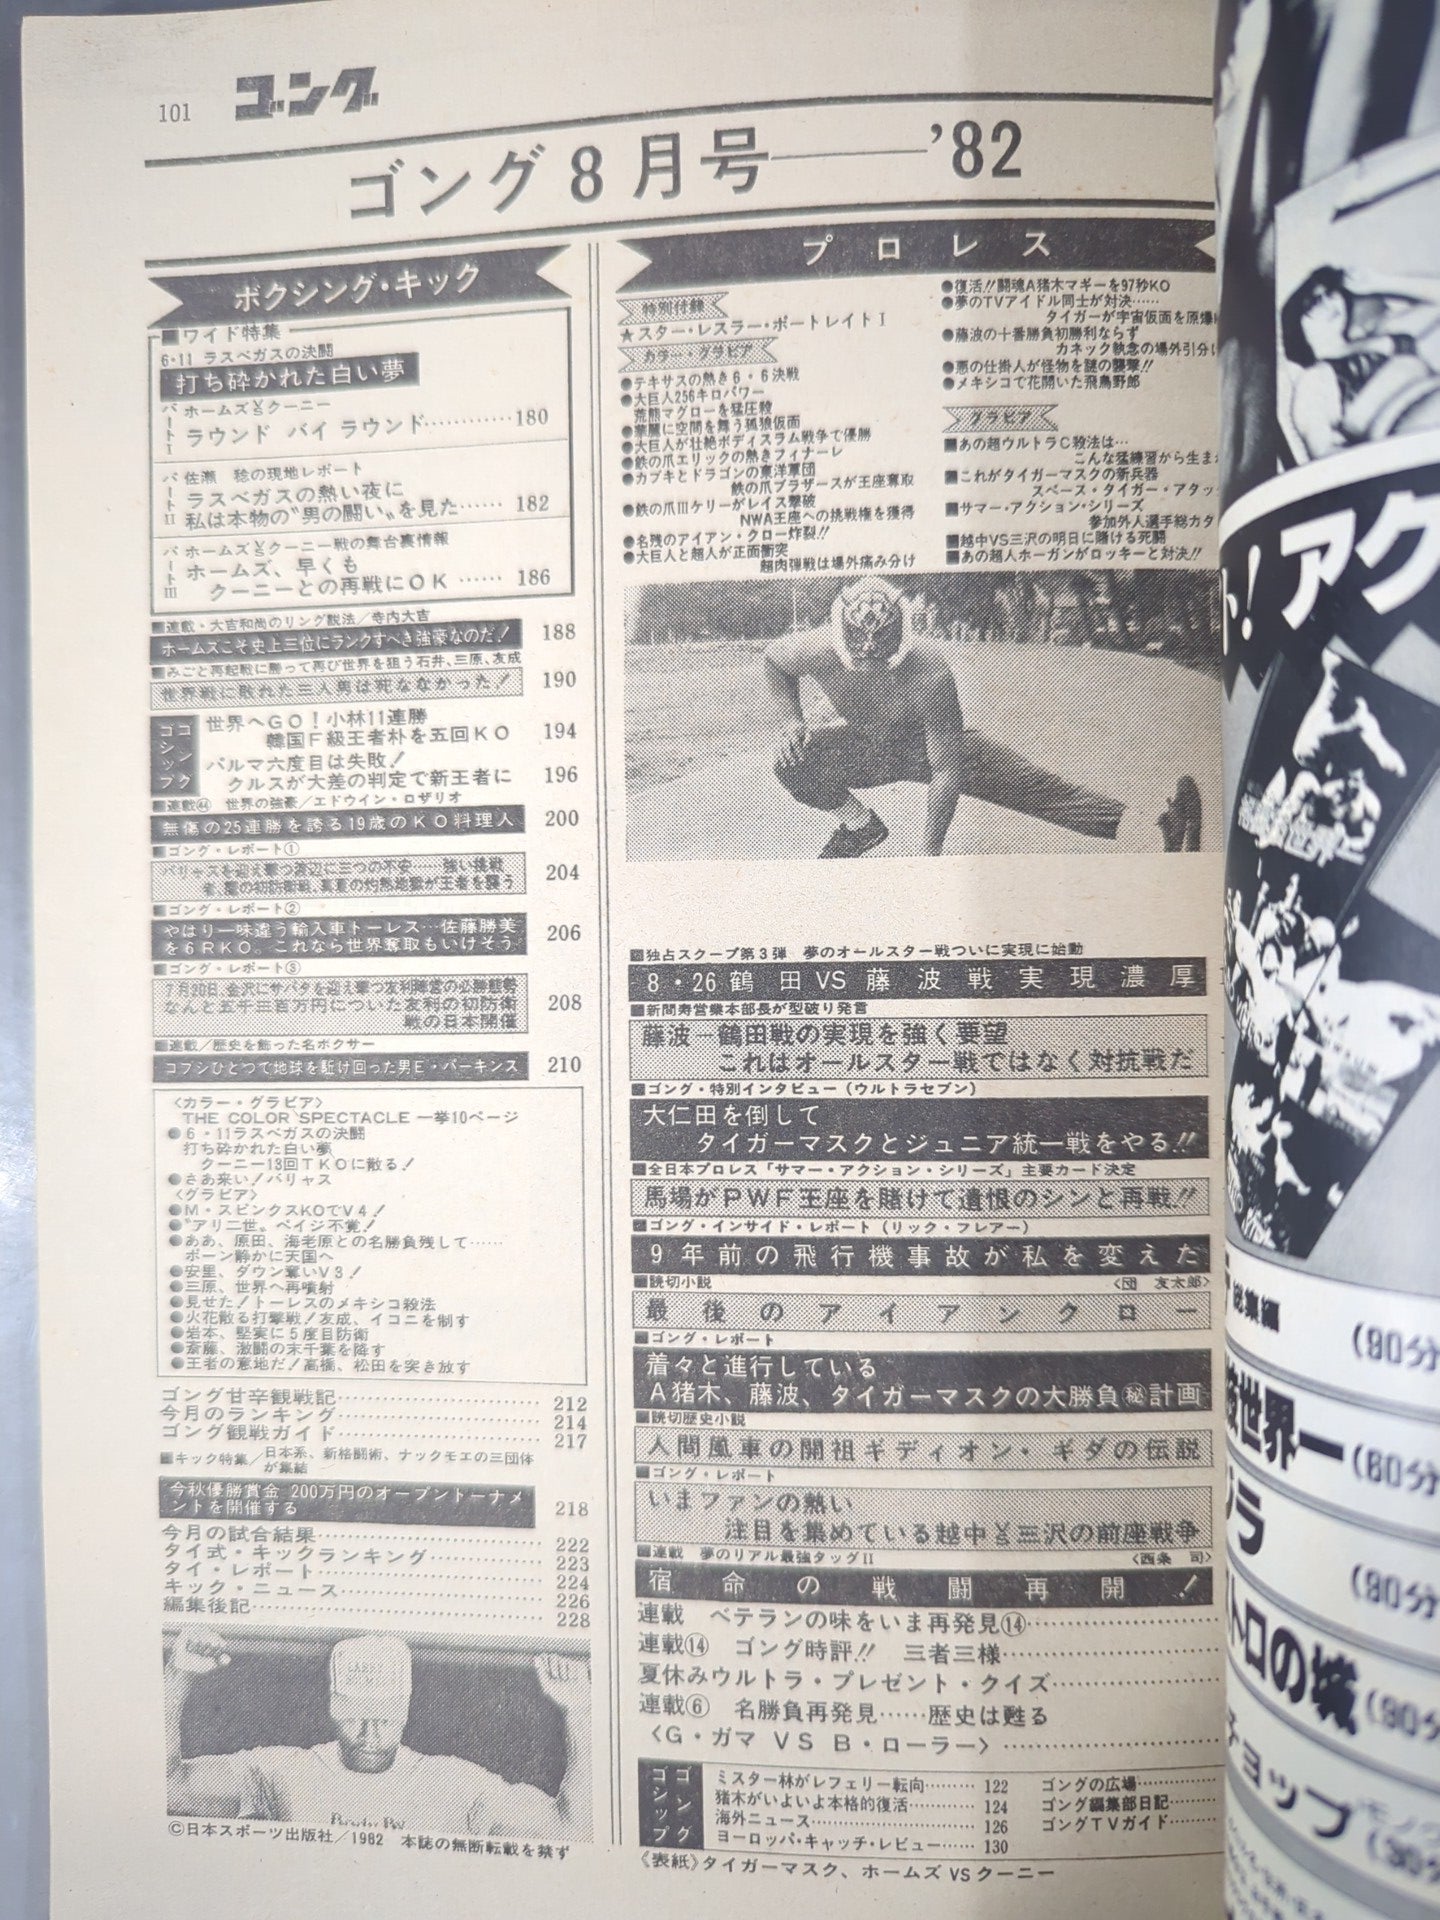 101
ゴング
ゴング8月号――'82
ボクシング・キック
■ワイド特集
6・11 ラスベガスの決闘
打ち砕かれた白い夢
パートI
ホームズVSクーニー
ラウンド バイ ラウンド…………180
パートII
佐瀬 稔の現地レポート
ラスベガスの熱い夜に
私は本物の〝男の闘い〟を見た……182
パートIII
ホームズVSクーニー戦の舞台裏情報
ホームズ、早くも
クーニーとの再戦にOK……186
■連載・大吉和尚のリング説法/寺内大吉
ホームズこそ史上三位にランクすべき強豪なのだ! 188
■みごと再起戦に勝って再び世界を狙う石井、三原、友成
世界戦に敗れた三人男は死ななかった! 190
ゴング ゴシップ
世界へGO!小林11連勝
韓国F級王者朴を五回KO 194
パルマ六度目は失敗!
クルスが大差の判定で新王者に 196
■連載㊹ 世界の強豪/エドウイン・ロザリオ
無傷の25連勝を誇る19歳のKO料理人 200
■ゴング・レポート①
バリャスを迎え撃つ渡辺に三つの不安……強い挑戦
者、魔の初防衛戦、真夏の灼熱地獄が王者を襲う 204
■ゴング・レポート②
やはり一味違う輸入車トーレス…佐藤勝美
を6RKO。これなら世界奪取もいけそう 206
■ゴング・レポート③
月20日 金沢にサパタを迎え撃つ友利陣営の必勝態勢
なんと五千三百万円についた友利の初防衛
戦の日本開催 208
■連載/歴史を飾った名ボクサー
コブシひとつで地球を駈け回った男E・パーキンス 210
〈カラー・グラビア〉
THE COLOR SPECTACLE 一挙10ページ
●6・11ラスベガスの決闘
打ち砕かれた白い夢
クーニー13回TKOに散る!
●さあ来い!バリャス
〈グラビア〉
●M・スピンクスKOでV4!
●〝アリ二世〟ペイジ不覚!
●ああ、原田、海老原との名勝負残して……
ポーン静かに天国へ
●安里、ダウン奪いV3!
●三原、世界へ再噴射
●見せた!トーレスのメキシコ殺法
●火花散る打撃戦!友成、イコニを制す
●岩本、堅実に5度目防衛
●斎藤、激闘の末千葉を降す
●王者の意地だ!高橋、松田を突き放す
ゴング甘辛観戦記……212
今月のランキング……214
ゴング観戦ガイド……217
■キック特集/日本系、新格闘術、ナックモエの三団体
が集結
今秋優勝賞金 200万円のオープントーナメ
ントを開催する 218
今月の試合結果……222
タイ式・キックランキング……223
タイ・レポート……224
キック・ニュース……226
編集後記……228
©日本スポーツ出版社/1982 本誌の無断転載を禁ず
プロレス
特別付録
★スター・レスラー・ポートレイトI
カラー・グラビア
●テキサスの熱き6・6決戦
●大巨人256キロパワー
荒熊マグローを猛圧殺
●華麗に空間を舞う狐狼仮面
●大巨人が壮絶ボディスラム戦争で優勝
●鉄の爪エリックの熱きフィナーレ
●カブキとドラゴンの東洋軍団
鉄の爪ブラザースが王座奪取
●鉄の爪IIIケリーがレイス撃破
NWA王座への挑戦権を獲得
●名残のアイアン・クロー炸裂!!
●大巨人と超人が正面衝突
超肉弾戦は場外痛み分け
●復活!!闘魂A猪木マギーを97秒KO
●夢のTVアイドル同士が対決……
タイガーが宇宙仮面を原爆
●藤波の十番勝負初勝利ならず
カネック執念の場外引分け
●悪の仕掛人が怪物を謎の襲撃!!
●メキシコで花開いた飛鳥野郎
グラビア
■あの超ウルトラC殺法は…
こんな猛練習から生ま
■これがタイガーマスクの新兵器
スペース・タイガー・アタッ
■サマー・アクション・シリーズ
参加外人選手総カタ
■越中VS三沢の明日に賭ける死闘
■あの超人ホーガンがロッキーと対決!!
■独占スクープ第3弾 夢のオールスター戦ついに実現に始動
8・26鶴田VS藤波戦実現濃厚
■新間寿営業本部長が型破り発言
藤波―鶴田戦の実現を強く要望
これはオールスター戦ではなく対抗戦だ
■ゴング・特別インタビュー(ウルトラセブン)
大仁田を倒して
タイガーマスクとジュニア統一戦をやる!!
■全日本プロレス「サマー・アクション・シリーズ」主要カード決定
馬場がPWF王座を賭けて遺恨のシンと再戦!!
■ゴング・インサイド・レポート(リック・フレアー)
9年前の飛行機事故が私を変えた
■読切小説 〈団 友太郎〉
最後のアイアンクロー
■ゴング・レポート
着々と進行している
A猪木、藤波、タイガーマスクの大勝負㊙計画
■読切歴史小説
人間風車の開祖ギディオン・ギダの伝説
■ゴング・レポート
いまファンの熱い
注目を集めている越中VS三沢の前座戦争
■連載 夢のリアル最強タッグII 〈西条 司〉
宿命の戦闘再開!
連載 ベテランの味をいま再発見⑭……
連載⑭ ゴング時評!! 三者三様……
夏休みウルトラ・プレゼント・クイズ……
連載⑥ 名勝負再発見……歴史は甦る
〈G・ガマ VS B・ローラー〉……
ゴング ゴシップ
ミスター林がレフェリー転向……122
猪木がいよいよ本格的復活……124
海外ニュース……126
ヨーロッパ・キャッチ・レビュー……130
ゴングの広場……
ゴング編集部日記……
ゴングTVガイド……
《表紙》タイガーマスク、ホームズVSクーニー
アク
総集編
(90分
世界一
(60分
ラ
(90分
トロの城
(90分
チョップ